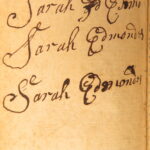 Sarah Ed
Sarah Edmonds
Sarah Edmonds